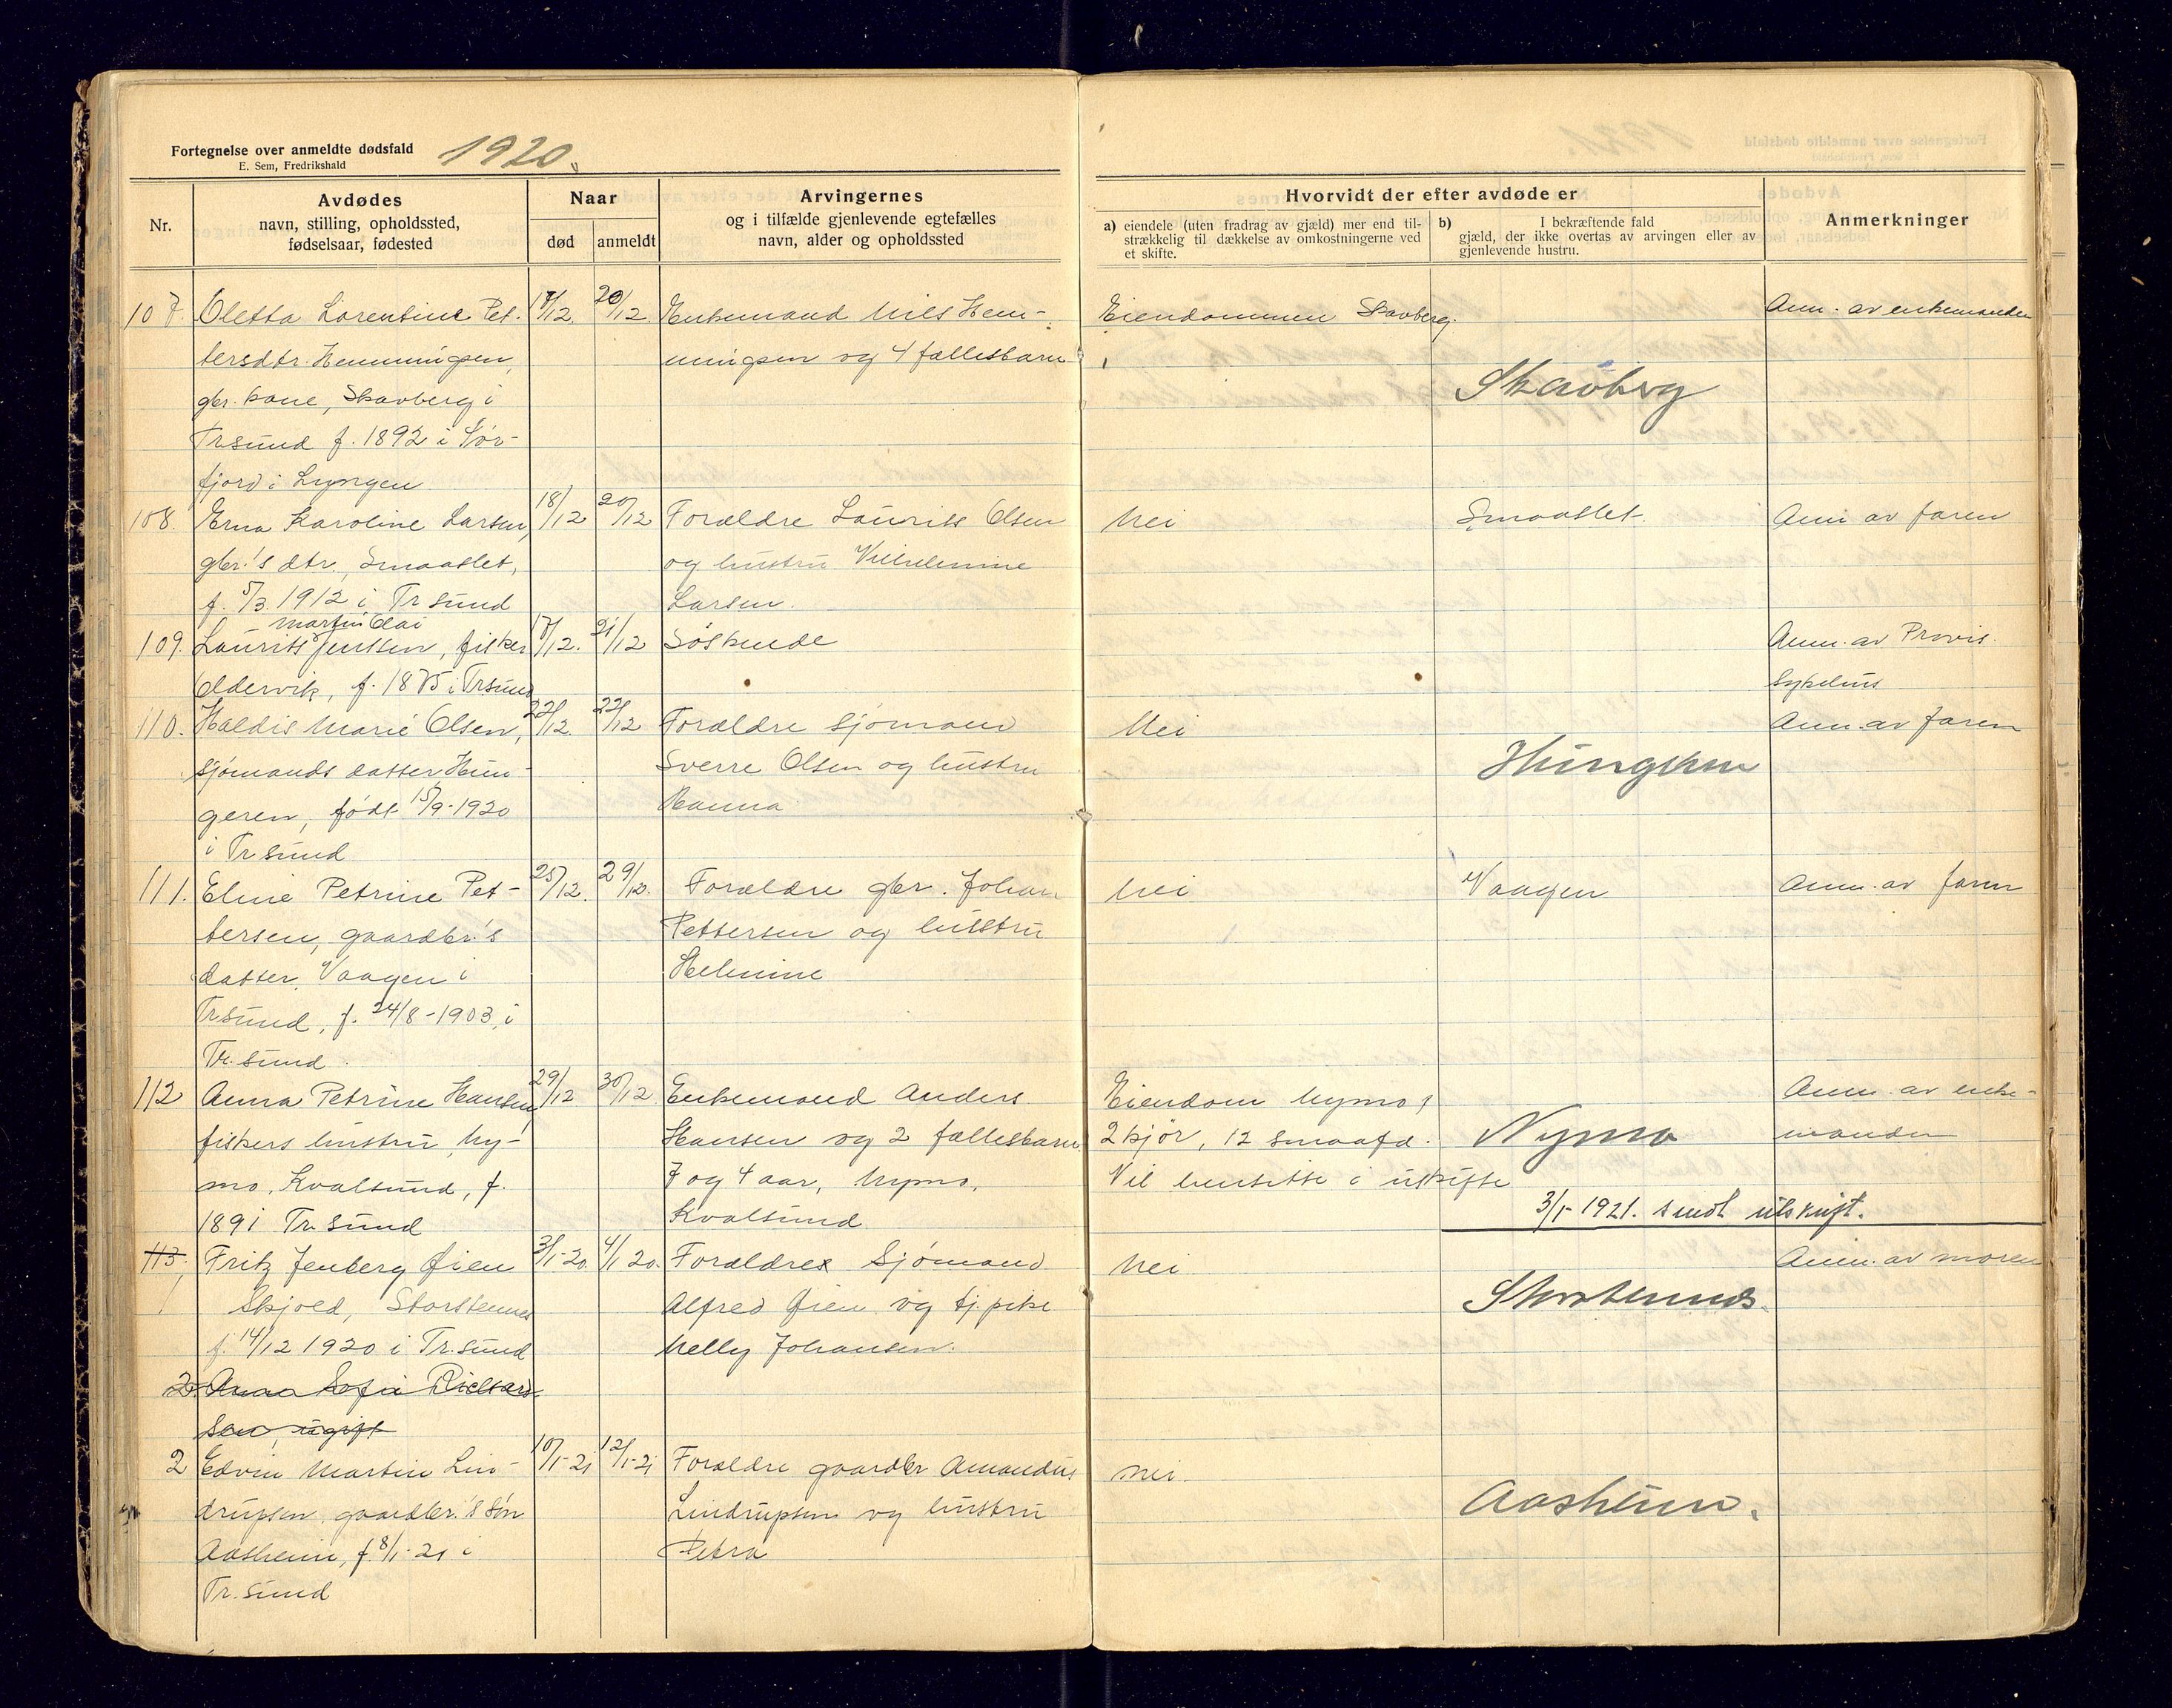 Fortegnelse over anmeldte dødsfald 1920.
E. Sem, Fredrikshald
Nr.
Avdødes
navn, stilling, opholdssted,
fødselsaar, fødested
Naar
død
anmeldt
Arvingernes
og i tilfælde gjenlevende egtefælles
navn, alder og opholdssted
Hvorvidt der efter avdøde er
a) eiendele (uten fradrag av gjæld) mer end til-
strækkelig til dækkelse av omkostningerne ved
et skifte.
b) I bekræftende fald
gjæld, der ikke overtas av arvingen eller av
gjenlevende hustru.
Anmerkninger
107. Oletta Lorentine Pet- 17/12. 20/12. Enkemand Nils Hem- Eiendommen Skavberg. Anm. av enkemanden
tersdtr. Hemmingsen, mingsen og 4 fællesbarn
gbr. kone, Skavberg i Skavberg
Trsund f. 1892 i Sør-
fjord i Lyngen
108. Erna Karoline Larsen, 18/12 20/12 Forældre Laurits Olsen Nei Smaaslet. Anm av faren
gbr.'s dtr., Smaaslet, og hustru Vilhelmine
f. 5/3. 1912 i Tr sund Larsen.
Martin Olai
109. Laurits Jenssen, fisker 17/12. 21/12 Søskende Anm. av Provis.
Oldervik, f. 1875 i Trsund Sykehus
110. Haldis Marie Olsen, 22/12. 22/12 Forældre sjømand Nei Anm. av faren
sjømands datter Hun- Sverre Olsen og hustru Hungeren
geren, født 15/9-1920 Hanna
i Tr sund
111. Eline Petrine Pet- 25/12. 29/12. Forældre gbr. Johan Nei Vaagen Anm. av faren
tersen, gaardbr.'s Pettersen og hustru
datter, Vaagen i Helmine
Trsund, f. 24/8-1903, i
Tr. sund
112 Anna Petrine Hansen, 29/12 30/12 Enkemand Anders Eiendom Nymo, Anm. av enke-
fiskers hustru, Ny- Hansen og 2 fællesbarn 2 kjør, 12 smaafæ. Nymo manden
mo, Kvalsund, f. 7 og 4 aar, Nymo, Vil hensitte i uskifte
1891 Tr. sund Kvalsund 3/1- 1921. sendt utskrift.
113. Fritz Jenberg Øien 3/1-20. 4/1 20. Forældre Sjømand Nei Anm. av moren
1 Skjold, Storstennes Alfred Øien og tj. pike Storstennes.
f. 14/12 1920 i Tr. sund Nelly Johansen.
2. Anna Sofie Rickard
sen, ugift
2 Edvin Martin Lin- 10/1-21 12/1-21 Forældre gaardbr Amandus nei
drupsen, gaardbr.'s søn Lindrupsen og hustru Aasheim.
Aasheim, f 8/1-21 i Petra
Tr. sund